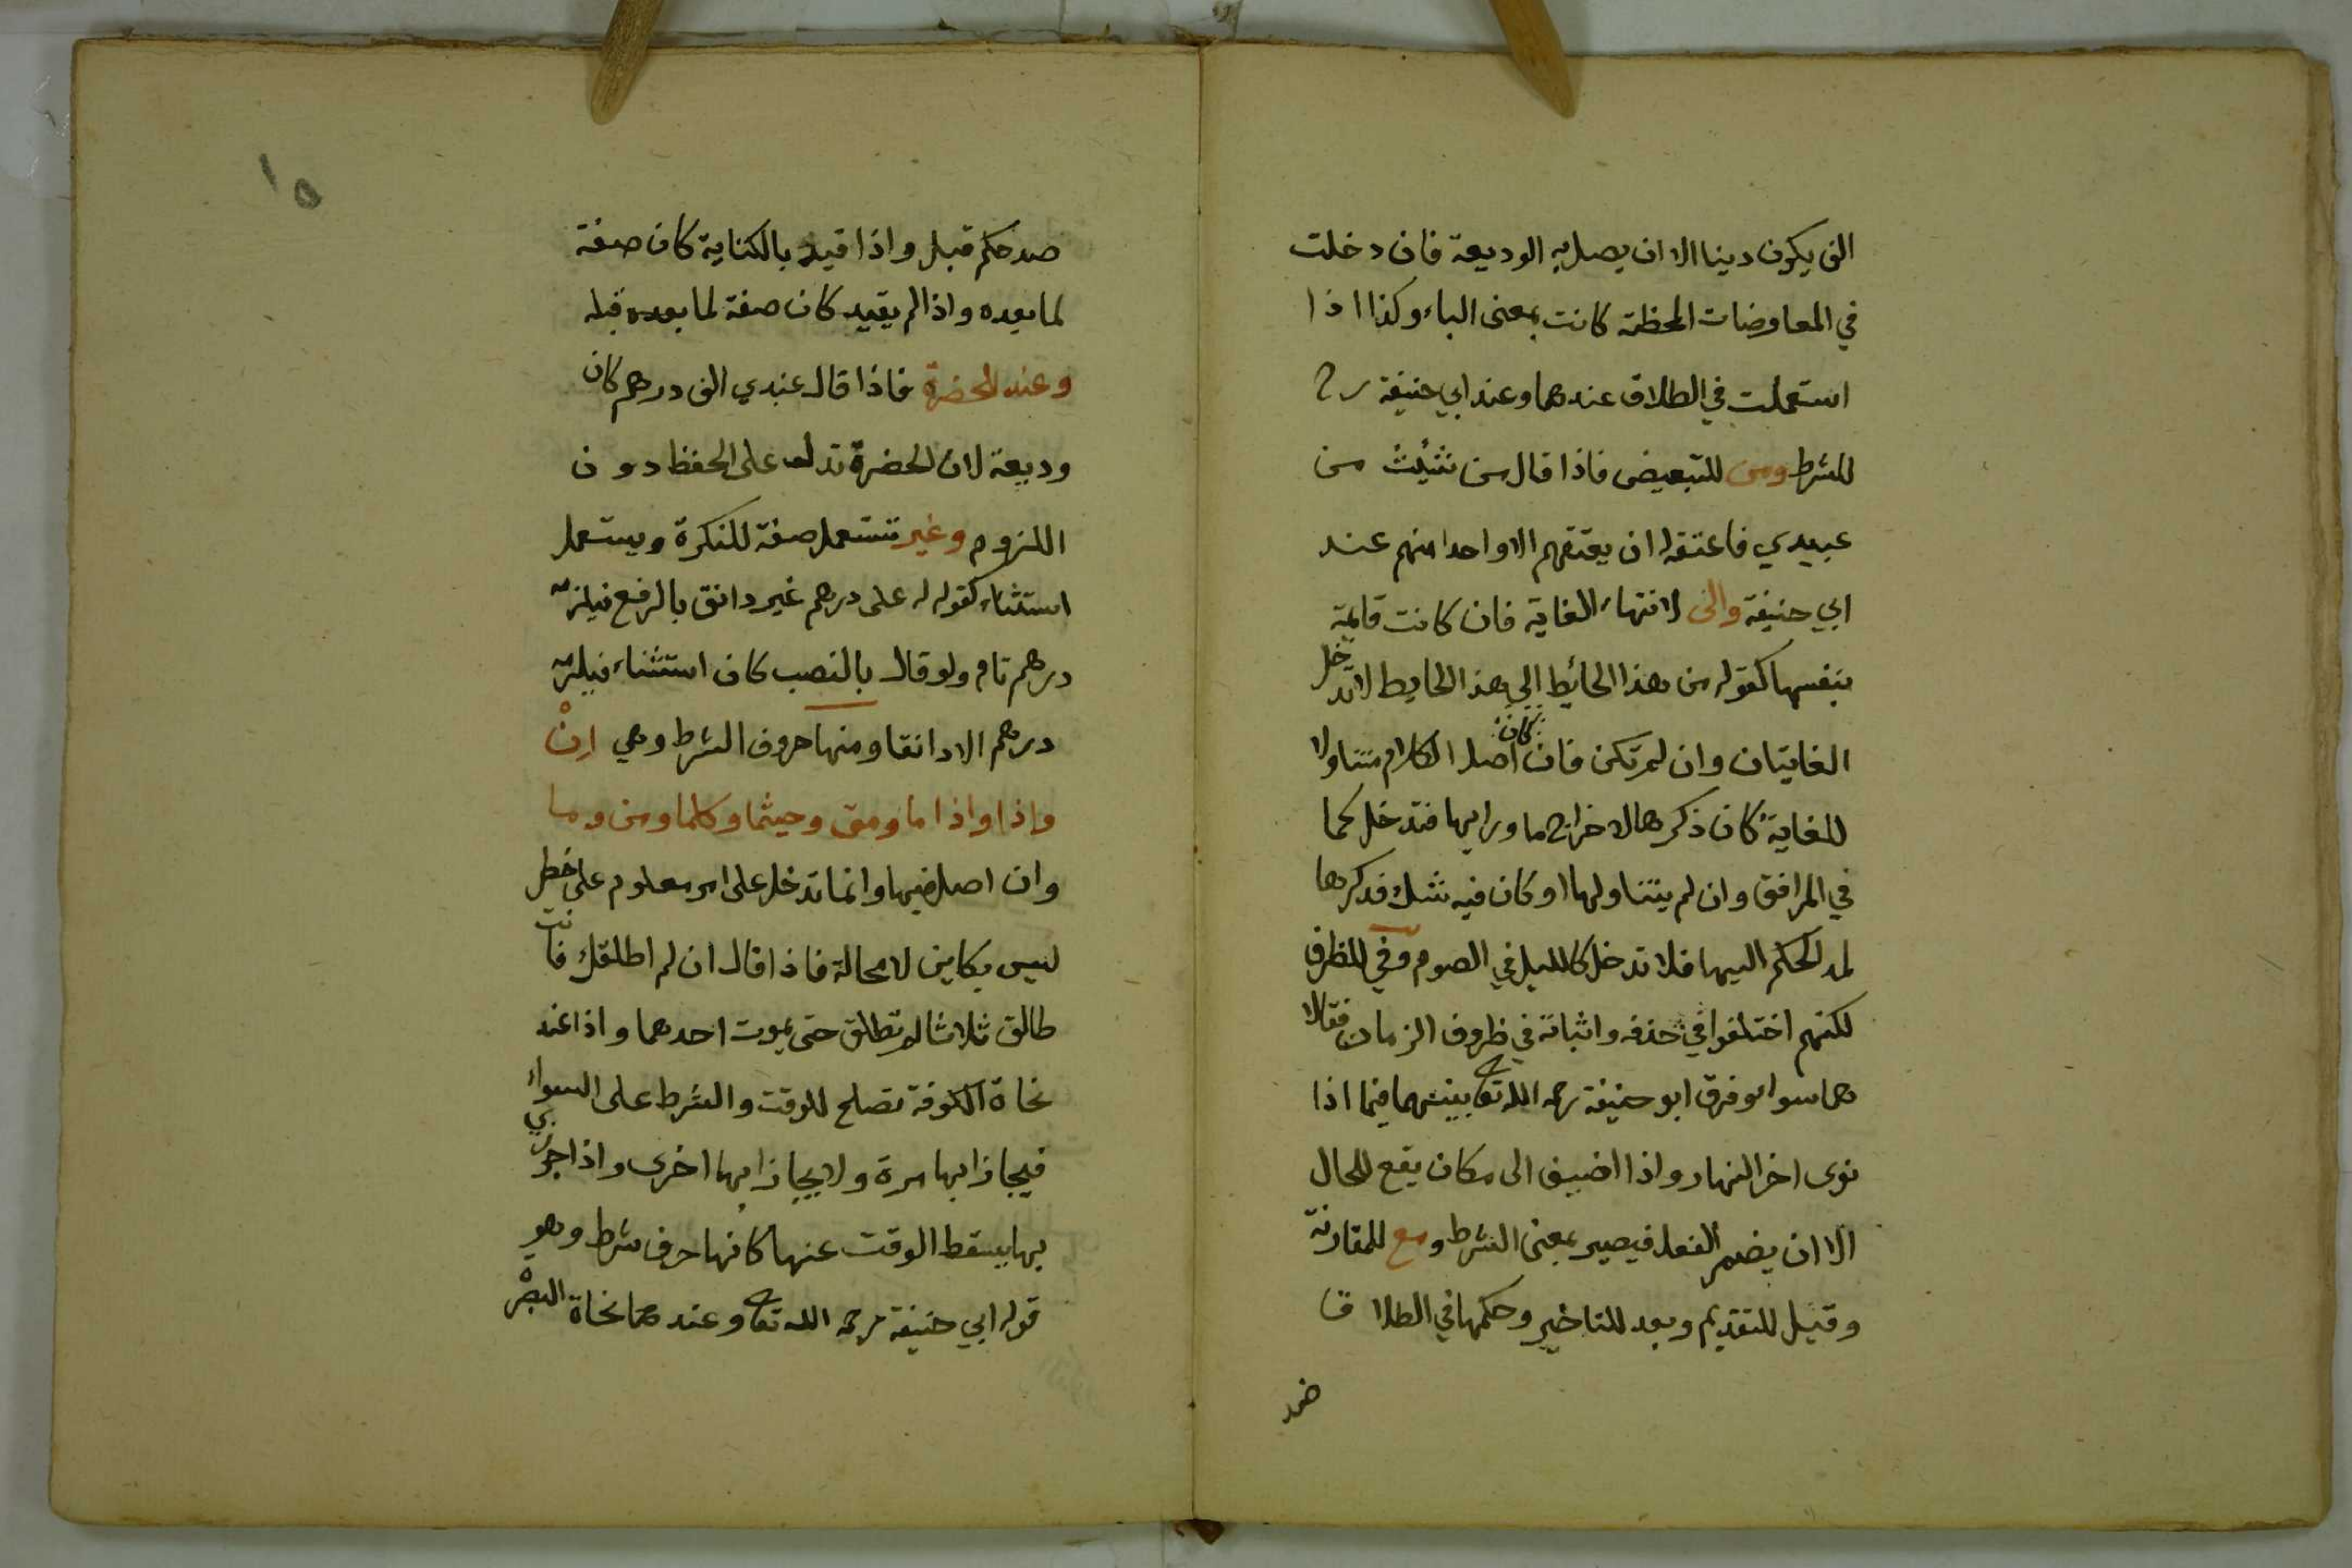 الف يكون دينا الا ان يصل به الوديعة فان دخلت
في المعاوضات المحظة كانت بمعنى الباء وكذا اذا
استعملت في الطلاق عندهما وعند ابي حنيفة رح
للشرط ومن للتبعيض فاذا قال من شئت من
عبيدي فاعتقه له ان يعتقهم الا واحدا منهم عند
ابي حنيفة والى لانتهاء الغاية فان كانت قايمة
بنفسها كقوله من هذا الحائط الى هذا الحايط لا تدخل
الغايتان وان لم تكن فان كان اصل الكلام متناولا
للغاية كان ذكرها لاخراج ما ورايها فتدخل كما
في المرافق وان لم يتناولها او كان فيه شك فذكرها
لمد الحكم اليها فلا تدخل كالليل في الصوم وفي للظرف
لكنهم اختلفوا في حذفه واثباته في ظروف الزمان فقالا
هما سواء وفرق ابو حنيفة رحمه الله تعا بينهما فيما اذا
نوى اخر النهار واذا اضيف الى مكان يقع للحال
الا ان يضمر الفعل فيصير بمعنى الشرط ومع للمقارنة
وقبل للتقديم وبعد للتاخير وحكمها في الطلاق
ضد
١٥
ضد حكم قبل واذا قيد بالكناية كان صفة
لما بعده واذا لم يقيد كان صفة لما بعده قبله
وعند للحضرة فاذا قال عندي الف درهم كان
وديعة لان الحضرة تدل على الحفظ دون
اللزوم وغير تستعمل صفة للنكرة ويستعمل
استثناء كقوله له على درهم غير دانق بالرفع فيلزمه
درهم تام ولو قال بالنصب كان استثناء فيلزمه
درهم الا دانقا ومنها حروف الشرط وهي ان
واذا واذا ما ومتى وحيثما وكلما ومن وما
وان اصل فيها وانما تدخل على امر معلوم على خطر
ليس بكاين لا محالة فاذا قال ان لم اطلقك فانت
طالق ثلاثا لم تطلق حتى يموت احدهما واذا عند
نحاة الكوفة تصلح للوقت والشرط على السواء
فيجازا بها مرة ولا يجازا بها اخرى واذا جوزي
بها يسقط الوقت عنها كانها حرف شرط وهو
قول ابي حنيفة رحمه الله تعا وعندهما نحاة البصرة